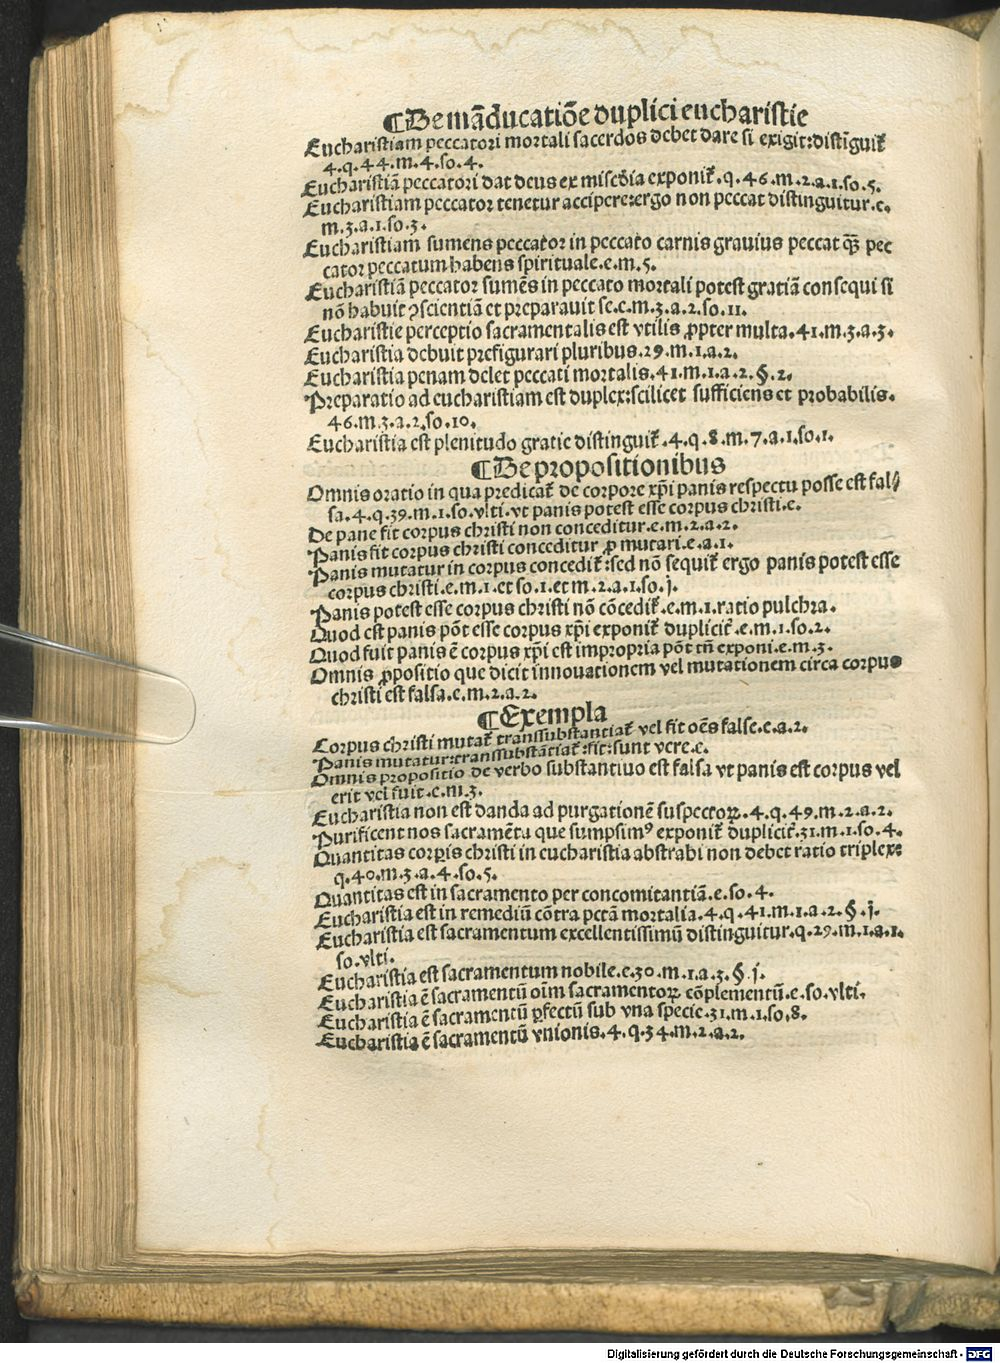 ¶De mãducatiõe duplici eucharistie
Eucharistiam peccatori mortali sacerdos debet dare si exigit:distĩguit̃
4.q.44.m.4.so.4.
Eucharistiã peccatori dat deus ex mise&#771;dia exponit̃.q.46.m.2.a.1.so.5.
Eucharistiam peccator tenetur accipere:ergo non peccat distinguitur.e.
m.3.a.1.so.3.
Eucharistiam sumens peccator in peccato carnis grauius peccat q̃ȝ pec
cator peccatum habens spirituale.e.m.5.
Eucharistiã peccator sumẽs in peccato mortali potest gratiã consequi si
nõ habuit ꝯscientiã et preparauit se.e.m.3.a.2.so.11.
Eucharistie perceptio sacramentalis est vtilis ꝓpter multa.41.m.3.a.3.
Eucharistia debuit prefigurari pluribus.29.m.1.a.2.
Eucharistia penam delet peccati mortalis.41.m.1.a.2.§.2.
Preparatio ad eucharistiam est duplex:scilicet sufficiens et probabilis.
46.m.3.a.2.so.10.
Eucharistia est plenitudo gratie distinguit̃.4.q.8.m.7.a.1.so.1.
¶De propositionibus
Omnis oratio in qua predicat̃ de corpore xp̃i panis respectu posse est fal⸗
sa.4.q.39.m.1.so.vlti.vt panis potest esse corpus christi.e.
De pane fit corpus christi non conceditur.e.m.2.a.2.
Panis fit corpus christi conceditur ꝓ mutari.e.a.1.
Panis mutatur in corpus concedit̃:sed nõ sequit̃ ergo panis potest esse
corpus christi.e.m.1.et so.1.et m.2.a.1.so.j.
Panis potest esse corpus christi nõ cõcedit̃.e.m.1.ratio pulchra.
Quod est panis põt esse corpus xp̃i exponit̃ duplicit̃.e.m.1.so.2.
Quod fuit panis ẽ corpus xp̃i est impropria põt tñ exponi.e.m.3.
Omnis ꝓpositio que dicit innouationem vel mutationem circa corpus
christi est falsa.e.m.2.a.2.
¶Exempla
Corpus christi mutat̃ transsubstantiat̃ vel fit oẽs false.e.a.2.
Panis mutatur:transsubstãtiat̃:fit:sunt vere.e.
Omnis propositio de verbo substantiuo est falsa vt panis est corpus vel
erit vel fuit.e.m.3.
Eucharistia non est danda ad purgationẽ suspectoꝝ.4.q.49.m.2.a.2.
Purificent nos sacramẽta que sumpsimꝰ exponit̃ duplicit̃.31.m.1.so.4.
Quantitas corꝑis christi in eucharistia abstrahi non debet ratio triplex:
q.40.m.3.a.4.so.5.
Quantitas est in sacramento per concomitantiã.e.so.4.
Eucharistia est in remediũ cõtra pctã mortalia.4.q.41.m.1.a.2.§.j.
Eucharistia est sacramentum excellentissimũ distinguitur.q.29.m.1.a.1.
so.vlti.
Eucharistia est sacramentum nobile.e.30.m.1.a.3.§.j.
Eucharistia ẽ sacramentũ oĩm sacramentoꝝ cõplementũ.e.so.vlti.
Eucharistia ẽ sacramentũ ꝑfectũ sub vna specie.31.m.1.so.8.
Eucharistia ẽ sacramentũ vnionis.4.q.34.m.2.a.2.
Digitalisierung gefördert durch die Deutsche Forschungsgemeinschaft - DFG